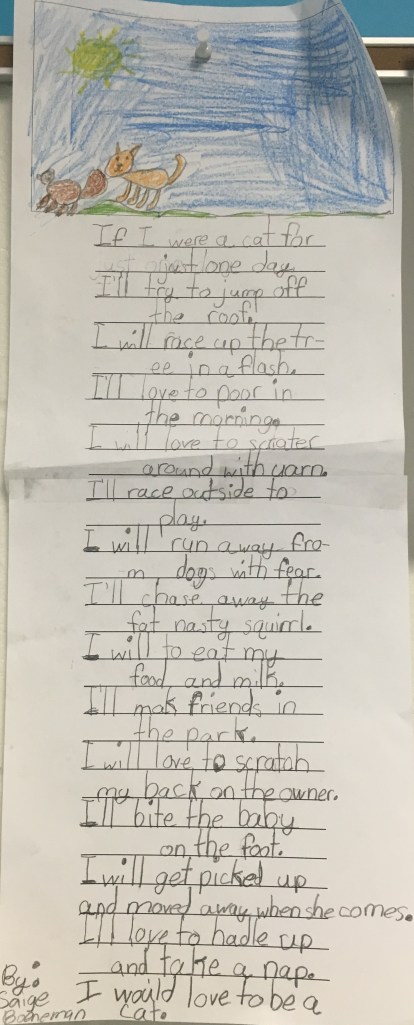 If I were a cat for
just one day
I'll try to jump off
the roof.
I will race up the tr-
ee in a flash.
I'll love to poor in
the morning.
I will love to scrater
around with yarn.
I'll race outside to
play.
I will run away fro-
m dogs with fear.
I'll chase away the
fat nasty squirrl.
I will to eat my
food and milk.
I'll mak friends in
the park.
I will love to scratch
my back on the owner.
I'll bite the baby
on the foot.
I will get picked up
and moved away when she comes.
I'll love to hadle up
and take a nap.
I would love to be a
cat.
By:
Saige